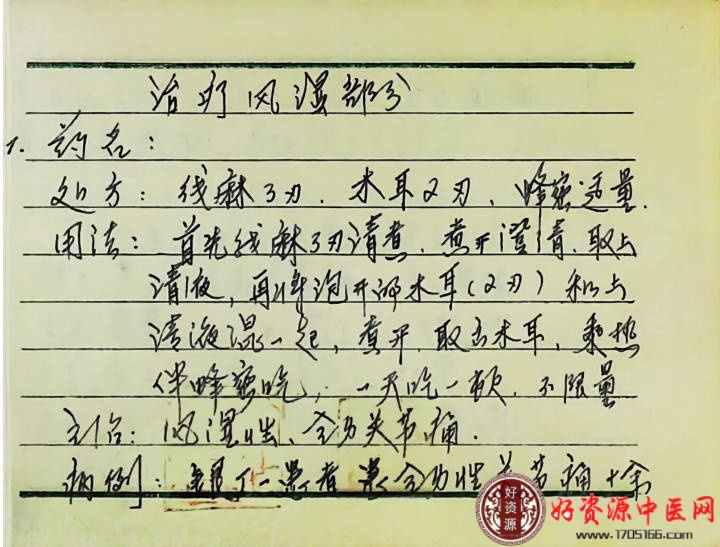 治疗风湿部分
1. 药名：
处方：线麻3刃．木耳2刃、蜂蜜适量．
用法：首先线麻3刃清煮．煮开澄清．取上
清液，再将泡开的木耳(2刃)和上
清液混一起，煮开．取出木耳，乘热
伴蜂蜜吃，一天吃一顿．不限量
主治：风湿性、全身关节痛．
病例：一患者 患全身性关节痛十余
好资源
好资源中医网
www.1705166.com